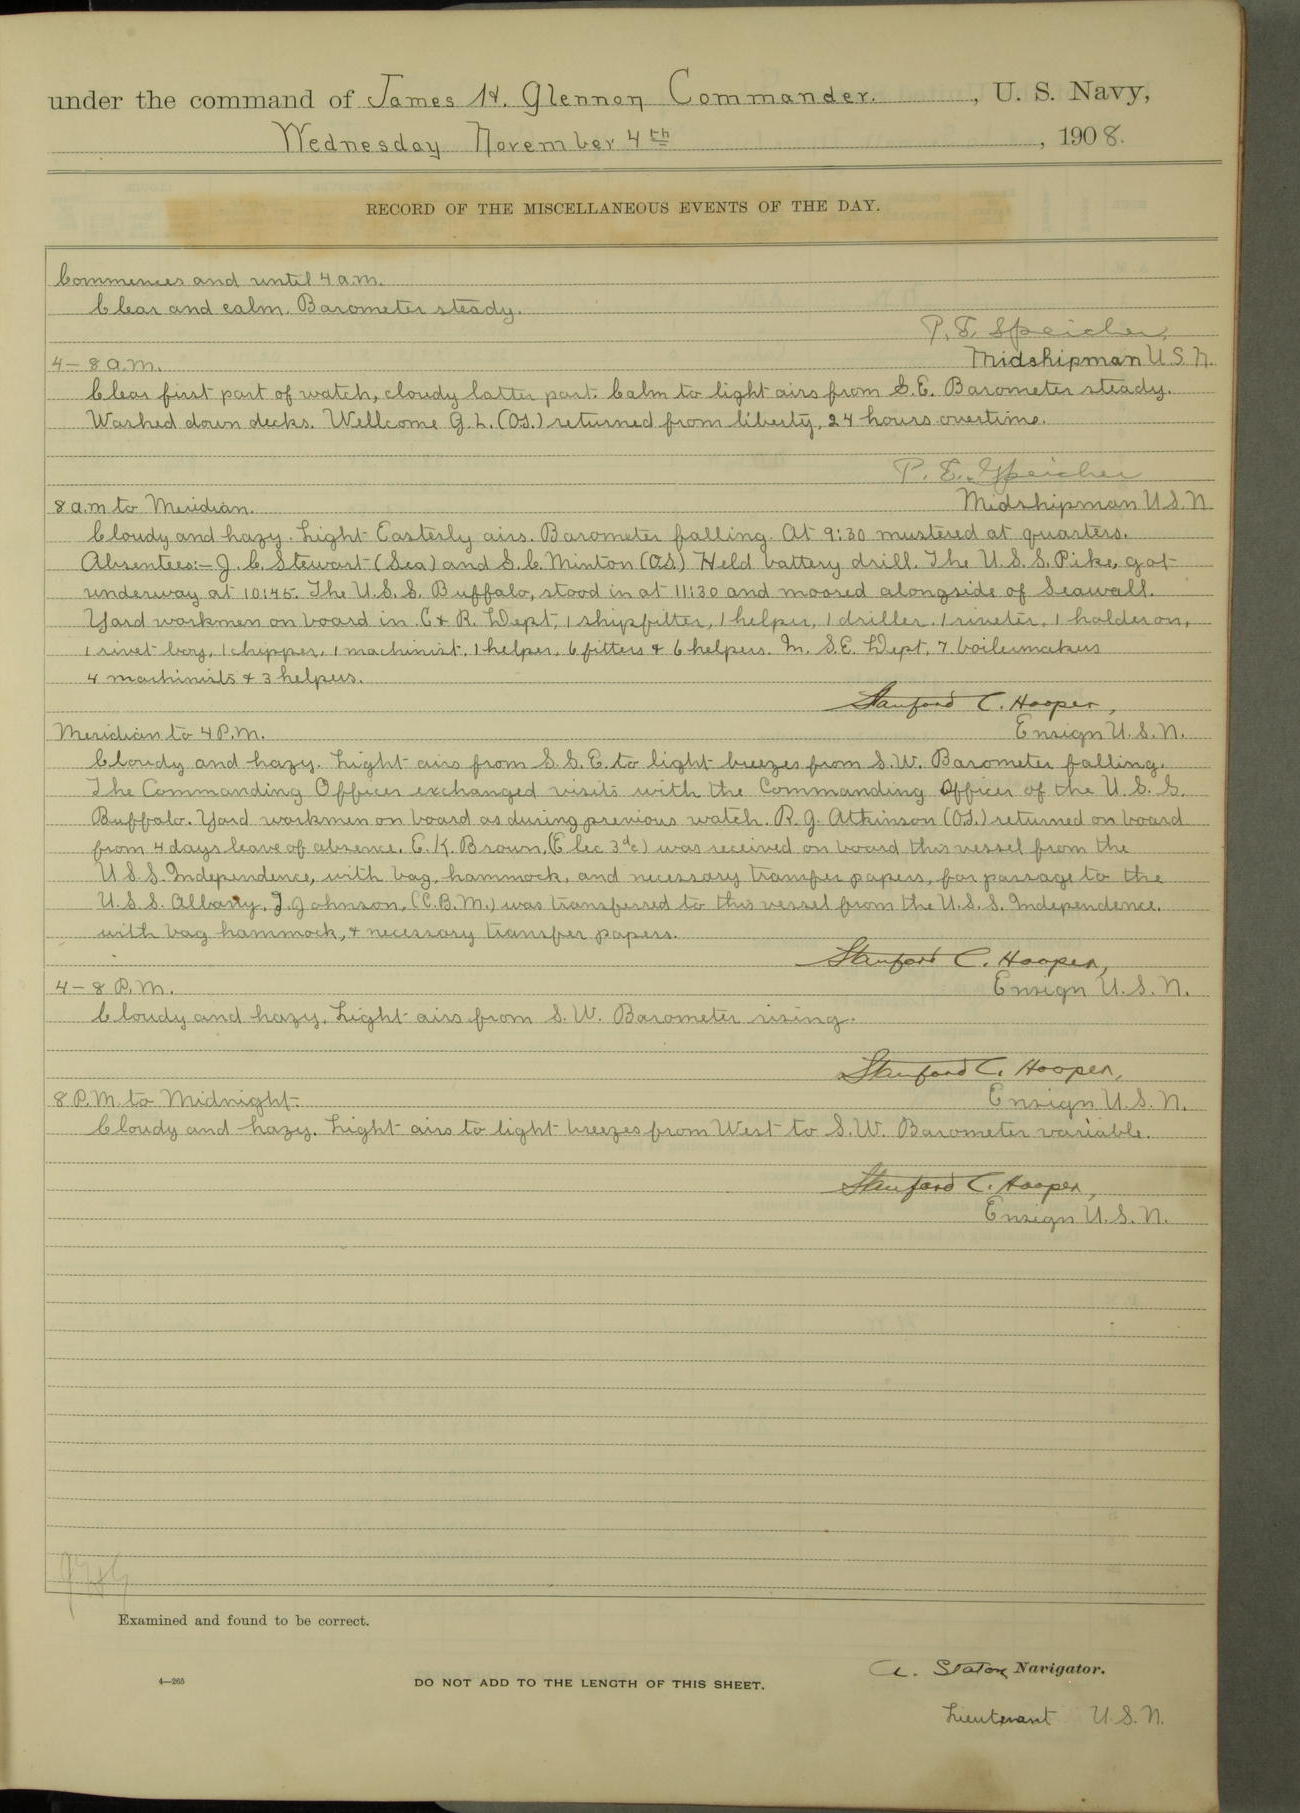 under the command of James H. Glennon Commander. , U. S. Navy,
Wednesday November 4th , 1908.
RECORD OF THE MISCELLANEOUS EVENTS OF THE DAY.
Commences and until 4 a.m.
Clear and calm. Barometer steady.
P. E. Speicher,
4 – 8 a.m.
Midshipman U.S.N.
Clear first part of watch, cloudy latter part. Calm to light airs from S.E. Barometer steady.
Washed down decks. Wellcome G. L. (OS.) returned from liberty, 24 hours overtime.
P. E. Speicher
8 a.m to Meridian.
Midshipman U.S.N
Cloudy and hazy. Light Easterly airs. Barometer falling. At 9:30 mustered at quarters.
Absentees:– J. C. Stewart (Sea) and S. C. Minton (OS) Held battery drill. The U.S.S. Pike, got
underway at 10:45. The U.S.S. Buffalo, stood in at 11:30 and moored alongside of Seawall.
Yard workmen on board in C & R. Dept, 1 shipfitter, 1 helper, 1 driller. 1 riveter, 1 holder on,
1 rivet boy, 1 chipper, 1 machinist, 1 helper, 6 fitters & 6 helpers. In S.E. Dept, 7 boilermakers
4 machinists & 3 helpers.
Stanford C. Hooper,
Meridian to 4 P.M.
Ensign U.S.N.
Cloudy and hazy. Light airs from S.S.E. to light breezes from S.W. Barometer falling.
The Commanding Officer exchanged visits with the Commanding Officer of the U.S.S.
Buffalo. Yard workmen on board as during previous watch. R. G. Atkinson (OS.) returned on board
from 4 days leave of absence. E. K. Brown, (Elec 3dc) was received on board this vessel from the
U.S.S. Independence, with bag, hammock, and necessary transfer papers, for passage to the
U.S.S. Albany. J. Johnson, (C.B.M.) was transferred to this vessel from the U.S.S. Independence.
with bag hammock, & necessary transfer papers.
Stanford C. Hooper,
4 – 8 P.M.
Ensign U.S.N.
Cloudy and hazy. Light airs from S.W. Barometer rising.
Stanford C. Hooper,
8 P.M. to Midnight.
Ensign U.S.N.
Cloudy and hazy. Light airs to light breezes from West to S.W. Barometer variable.
Stanford C. Hooper,
Ensign U.S.N.
Examined and found to be correct.
A. Staton Navigator.
4—265
DO NOT ADD TO THE LENGTH OF THIS SHEET.
Lieutenant U.S.N.